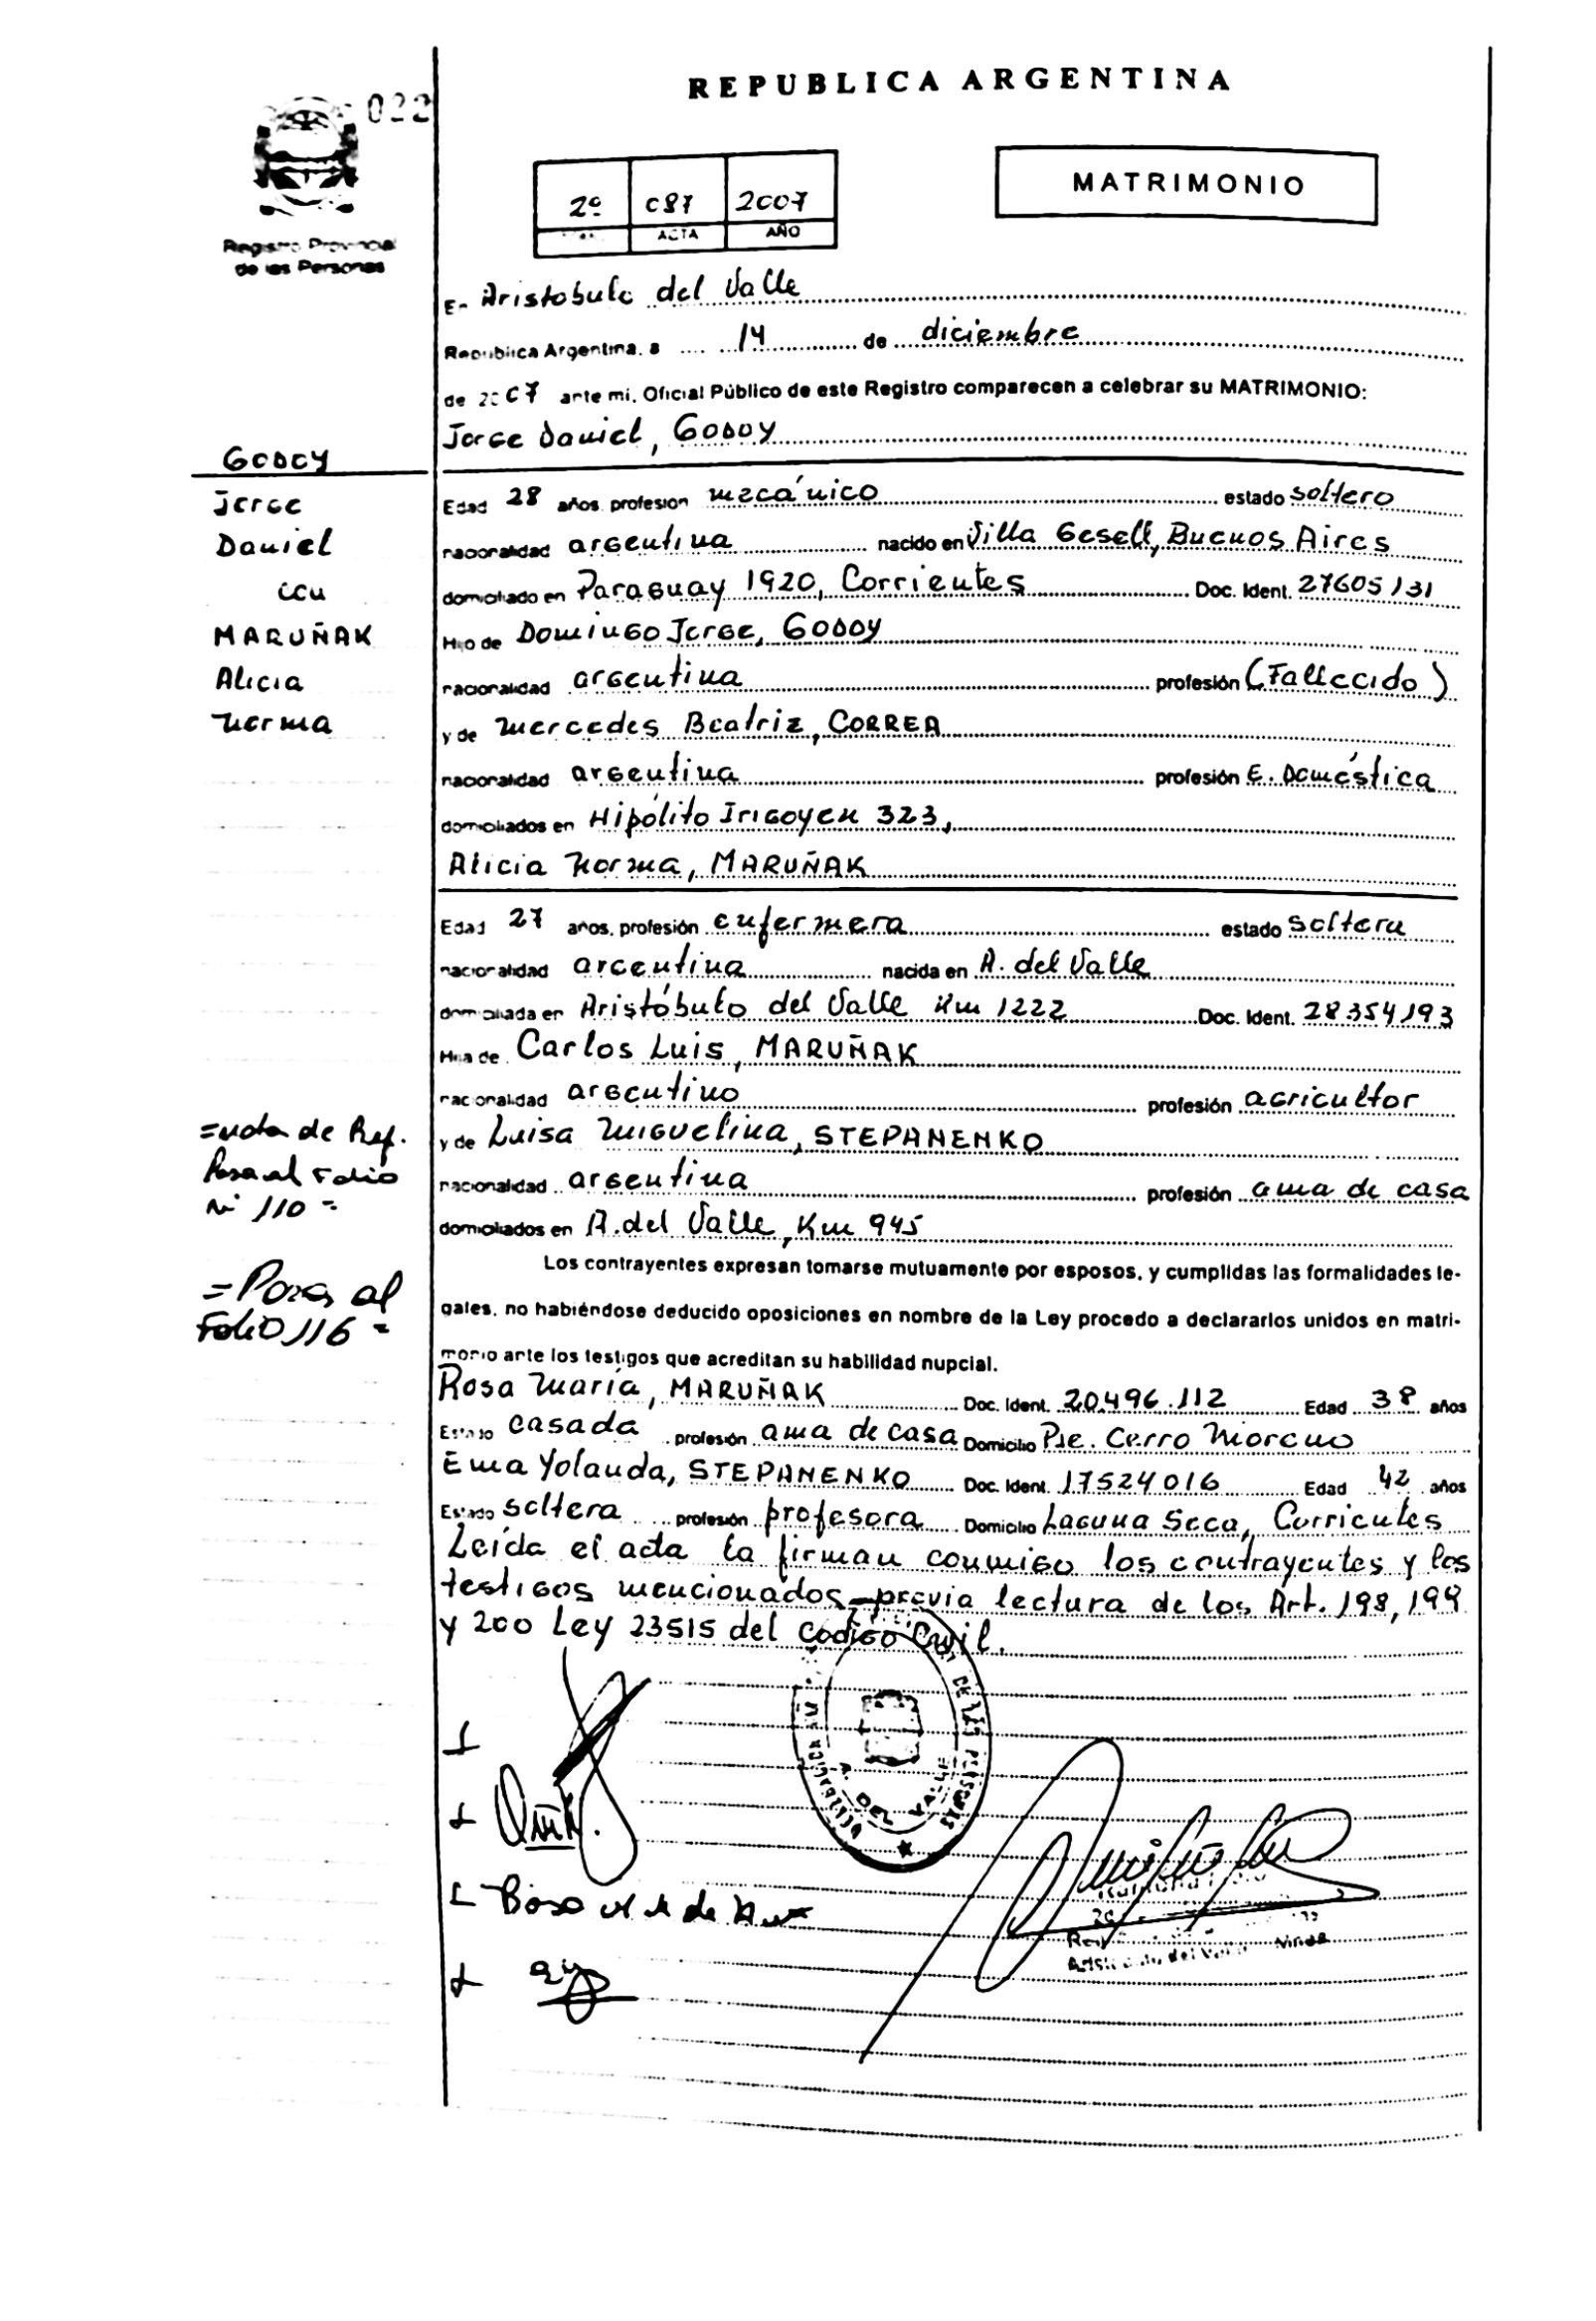 REPUBLICA ARGENTINA
022
MATRIMONIO
2º 087 2007
ACTA AÑO
Registro Provincial
de las Personas
En Aristobulo del Valle
Republica Argentina, a 14 de diciembre
de 2007 ante mi, Oficial Público de este Registro comparecen a celebrar su MATRIMONIO:
Jorge Daniel, GODOY
GODOY
Jorge
Daniel
con
MARUÑAK
Alicia
Norma
Edad 28 años, profesion mecánico estado soltero
nacionalidad argentina nacido en Villa Gesell, Buenos Aires
domiciliado en Paraguay 1920, Corrientes Doc. Ident. 27605131
Hijo de Domingo Jorge, GODOY
nacionalidad argentina profesión (Fallecido)
y de Mercedes Beatriz, CORREA
nacionalidad argentina profesión E. Doméstica
domiciliados en Hipólito Irigoyen 323,
Alicia Norma, MARUÑAK
Edad 27 años, profesión enfermera estado soltera
nacionalidad argentina nacida en A. del Valle
domiciliada en Aristóbulo del Valle Km 1222 Doc. Ident. 28.354.193
Hija de Carlos Luis, MARUÑAK
nacionalidad argentino profesión agricultor
y de Luisa Miguelina, STEPANENKO
nacionalidad argentina profesión ama de casa
domiciliados en A. del Valle, Km 945
=nota de Ref.
Pasa al Folio
Nº 110 =
=Pasa al
Folio 116 =
Los contrayentes expresan tomarse mutuamente por esposos, y cumplidas las formalidades le-
gales, no habiéndose deducido oposiciones en nombre de la Ley procedo a declararlos unidos en matri-
monio ante los testigos que acreditan su habilidad nupcial.
Rosa María, MARUÑAK Doc. Ident. 20.496.112 Edad 38 años
Estado casada profesión ama de casa Domicilio Pje. Cerro Moreno
Ema Yolanda, STEPANENKO Doc. Ident. 17524016 Edad 42 años
Estado soltera profesión profesora Domicilio Laguna Seca, Corrientes
Leída el acta la firman conmigo los contrayentes y los
testigos mencionados previa lectura de los Art. 198, 199
y 200 Ley 23515 del Codigo Civil.
DE LAS PERSONAS
A. DEL VALLE